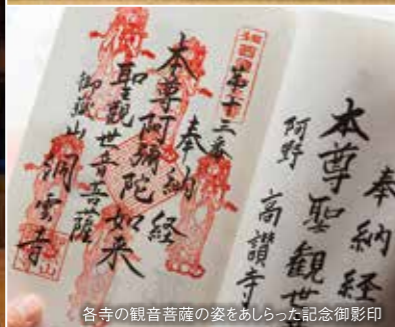 奉納経
本尊聖観世
阿野 高讃寺
第十三番
奉納経
本尊阿彌陀如来
聖觀世音菩薩
御嶽山 洞雲寺
各寺の観音菩薩の姿をあしらった記念御影印